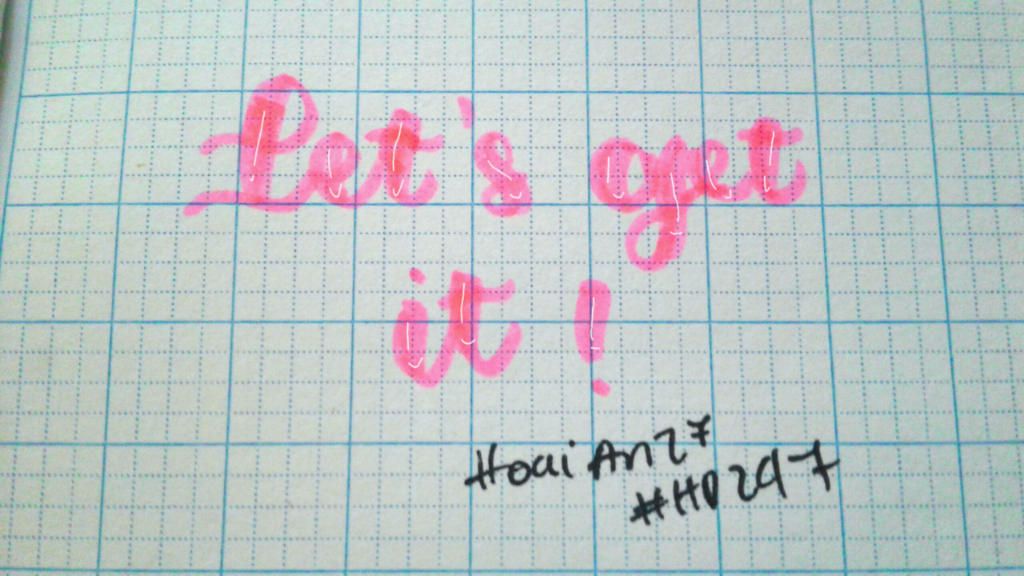 Let's get
it!
HoaiAn27
#HD297